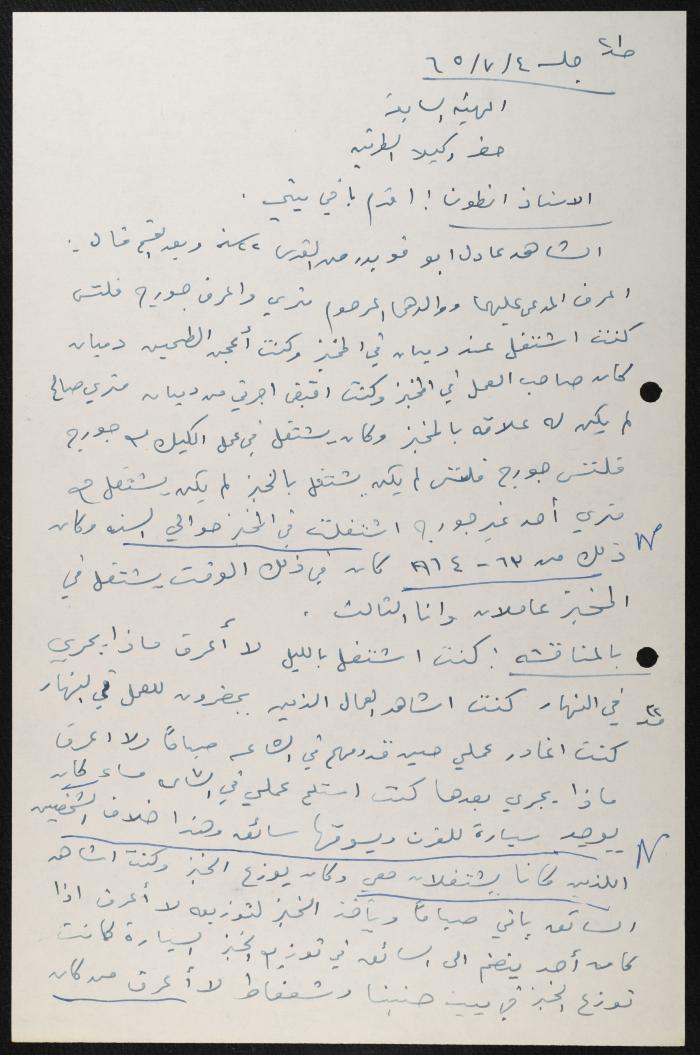 جلسة ٦٥/٧/٤
الهيئة السابقة
حضر وكيلا الطرفين
الاستاذ انطون : اقدم باقي بينتي .
الشاهد عادل ابو قويدر من القدس ٢٢ سنة وبعد القسم قال :
اعرف المدعى عليهما ووالدهما المرحوم متري واعرف جورج فلتس
كنت اشتغل عند ديبان في المخبز وكنت أعجن الطحين ديبان
كان صاحب العمل في المخبز وكنت اقبض اجرتي من ديبان متري صالح
لم يكن له علاقة بالمخبز وكان يشتغل في عمل الكيك مع جورج
فلتس جورج فلتس لم يكن يشتغل بالخبز لم يكن يشتغل مع
متري أحد غير جورج اشتغلت في المخبز حوالي السنة وكان
ذلك من ٦٣ - ١٩٦٤ كان في ذلك الوقت يشتغل في
المخبز عاملان وانا الثالث .
بالمناقشة : كنت اشتغل بالليل لا أعرف ماذا يجري
في النهار كنت اشاهد العمال الذين يحضرون للعمل في النهار
كنت اغادر عملي حين قدومهم في الساعة صباحًا ولا اعرف
ماذا يجري بعدها كنت استلم عملي في الساعة مساء كان
يوجد سيارة للفرن ويسوقها سائق وهذا خلاف الشخصين
اللذين كانا يشتغلان معي وكان يوزع الخبز وكنت اشاهد
السائق يأتي صباحًا ويأخذ الخبز لتوزيعه لا أعرف اذا
كان أحد ينضم الى السائق في توزيع الخبز السيارة كانت
توزع الخبز في بيت حنينا وشعفاط لا أعرف من كان